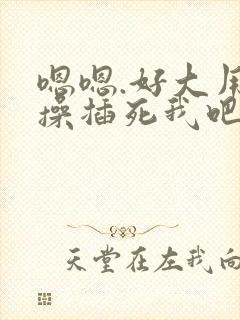 嗯嗯.好大用
操插死我吧
天堂在左我向